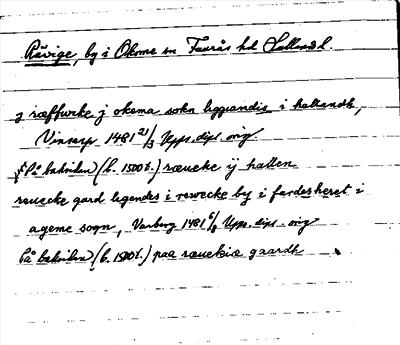 Rävige, by i Okome sn Faurås hd Halland l.
j ræffweke j okema sokn liggiandis i hallandh,
Vinterp. 1481 21/3 Upps. dipl. orig.
(På baksidan) (b. 1500 t.) ræueke ij hallen
reuecke gard legendes i rewecke by i fardesheret i
ageme sogn, Varberg 1481 6/9 Upps. dipl. orig
(På baksidan) (b. 1500 t.) paa reuekiæ gaardh